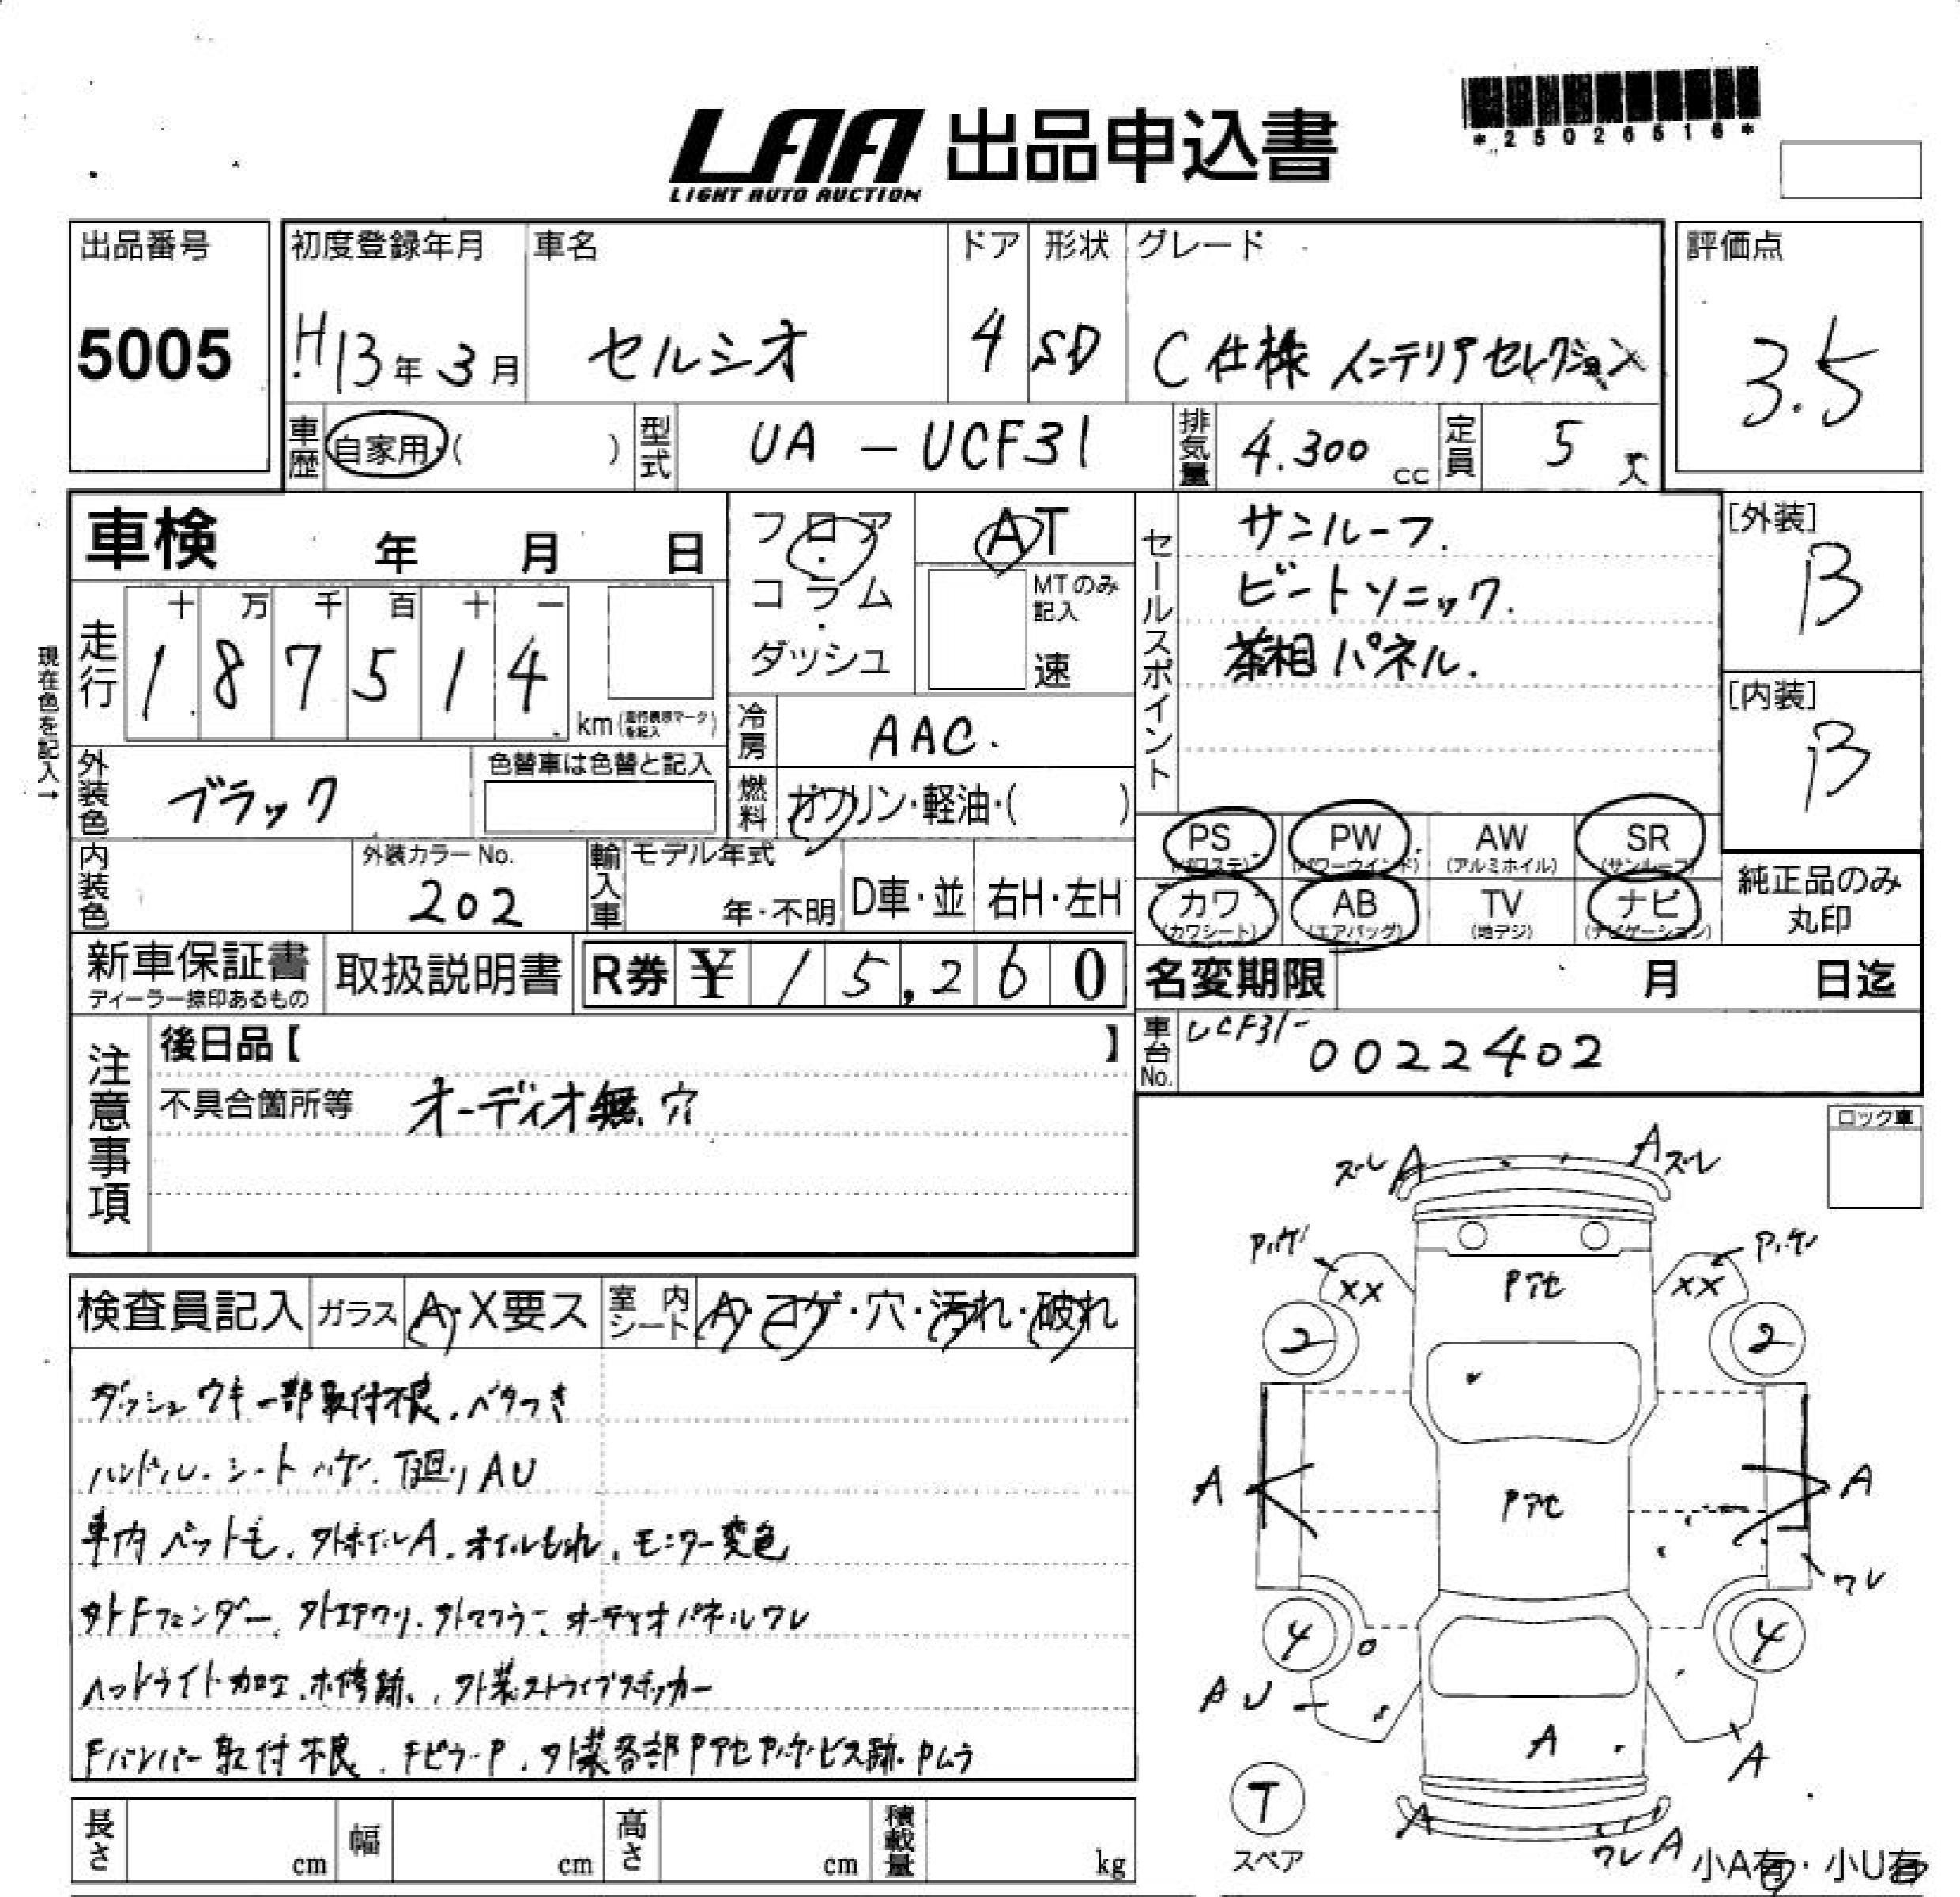 *25026516*
LAA 出品申込書
LIGHT AUTO AUCTION
出品番号
5005
初度登録年月 車名 ドア 形状 グレード
H13年3月 セルシオ 4 SD C仕様 インテリアセレクション
評価点
3.5
車歴 自家用・( ) 型式 UA-UCF31 排気量 4.300cc 定員 5人
車検 年 月 日
フロア・コラム・ダッシュ
AT
MTのみ記入
速
現在色を記入→
走行 十 万 千 百 十 一
187514 km(走行表示マークを記入)
セールスポイント
サンルーフ.
ビートソニック.
茶木目パネル.
[外装]
B
[内装]
B
冷房 AAC.
外装色 ブラック 色替車は色替と記入
燃料 ガソリン・軽油・( )
内装色 外装カラーNo. 202
輸入車 モデル年式 年・不明 D車・並 右H・左H
PS (パワステ) PW (パワーウインド) AW (アルミホイル) SR (サンルーフ)
カワ (カワシート) AB (エアバッグ) TV (地デジ) ナビ (ナビゲーション)
純正品のみ丸印
新車保証書 ディーラー捺印あるもの 取扱説明書 R券 ¥15,260
名変期限 月 日迄
車台No. UCF31-0022402
注意事項
後日品【 】
不具合箇所等 オーディオ無.穴
ロック車
検査員記入 ガラス A・X要ス 室内シート A・コゲ・穴・汚れ・破れ
ダッシュウキ一部取付不良.ベタつき
ハンドル.シートハゲ.下回りAU
車内ペット毛.外ホイルA.オイルもれ.モニター変色
外Fフェンダー.外エアクリ.外マフラー.オーディオパネルワレ
ヘッドライト加工.補修跡.外装ストライプステッカー
Fバンパー取付不良.FピラーP.外装各部PアセPハゲ.ビス跡.Pムラ
ズレ A A ズレ
Pハゲ Pハゲ
XX Pアセ XX
2 2
A Pアセ A
ワレ
4 4
AU
A A
T
スペア
A ワレA
小A有・小U有
長さ cm 幅 cm 高さ cm 積載量 kg